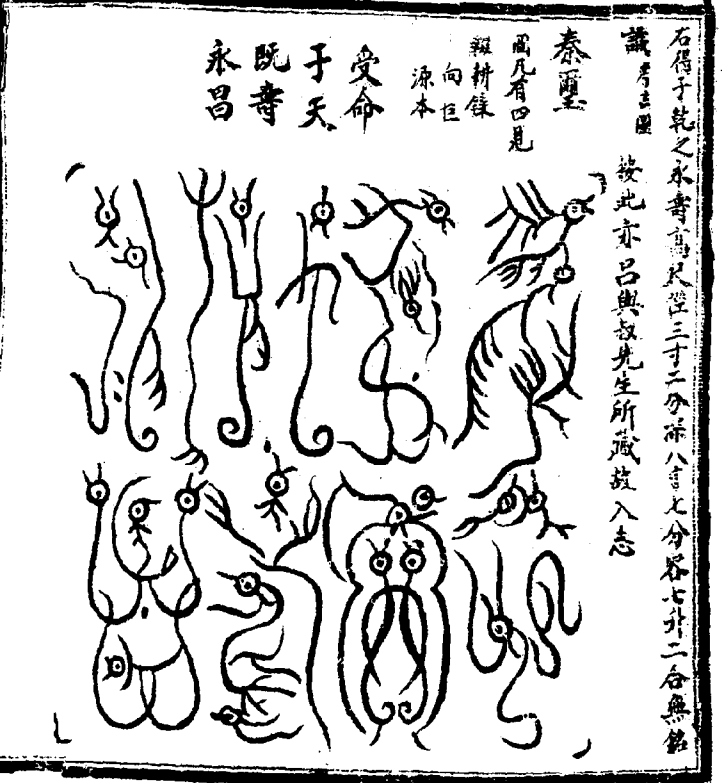 右得于乾之永壽高尺徑三寸二分深八寸七分容七升二合無銘
識考古圖
按此亦呂與叔先生所藏故入志
秦璽
圖凡有四見
輟耕錄
向巨
源本
受命
于天
既壽
永昌